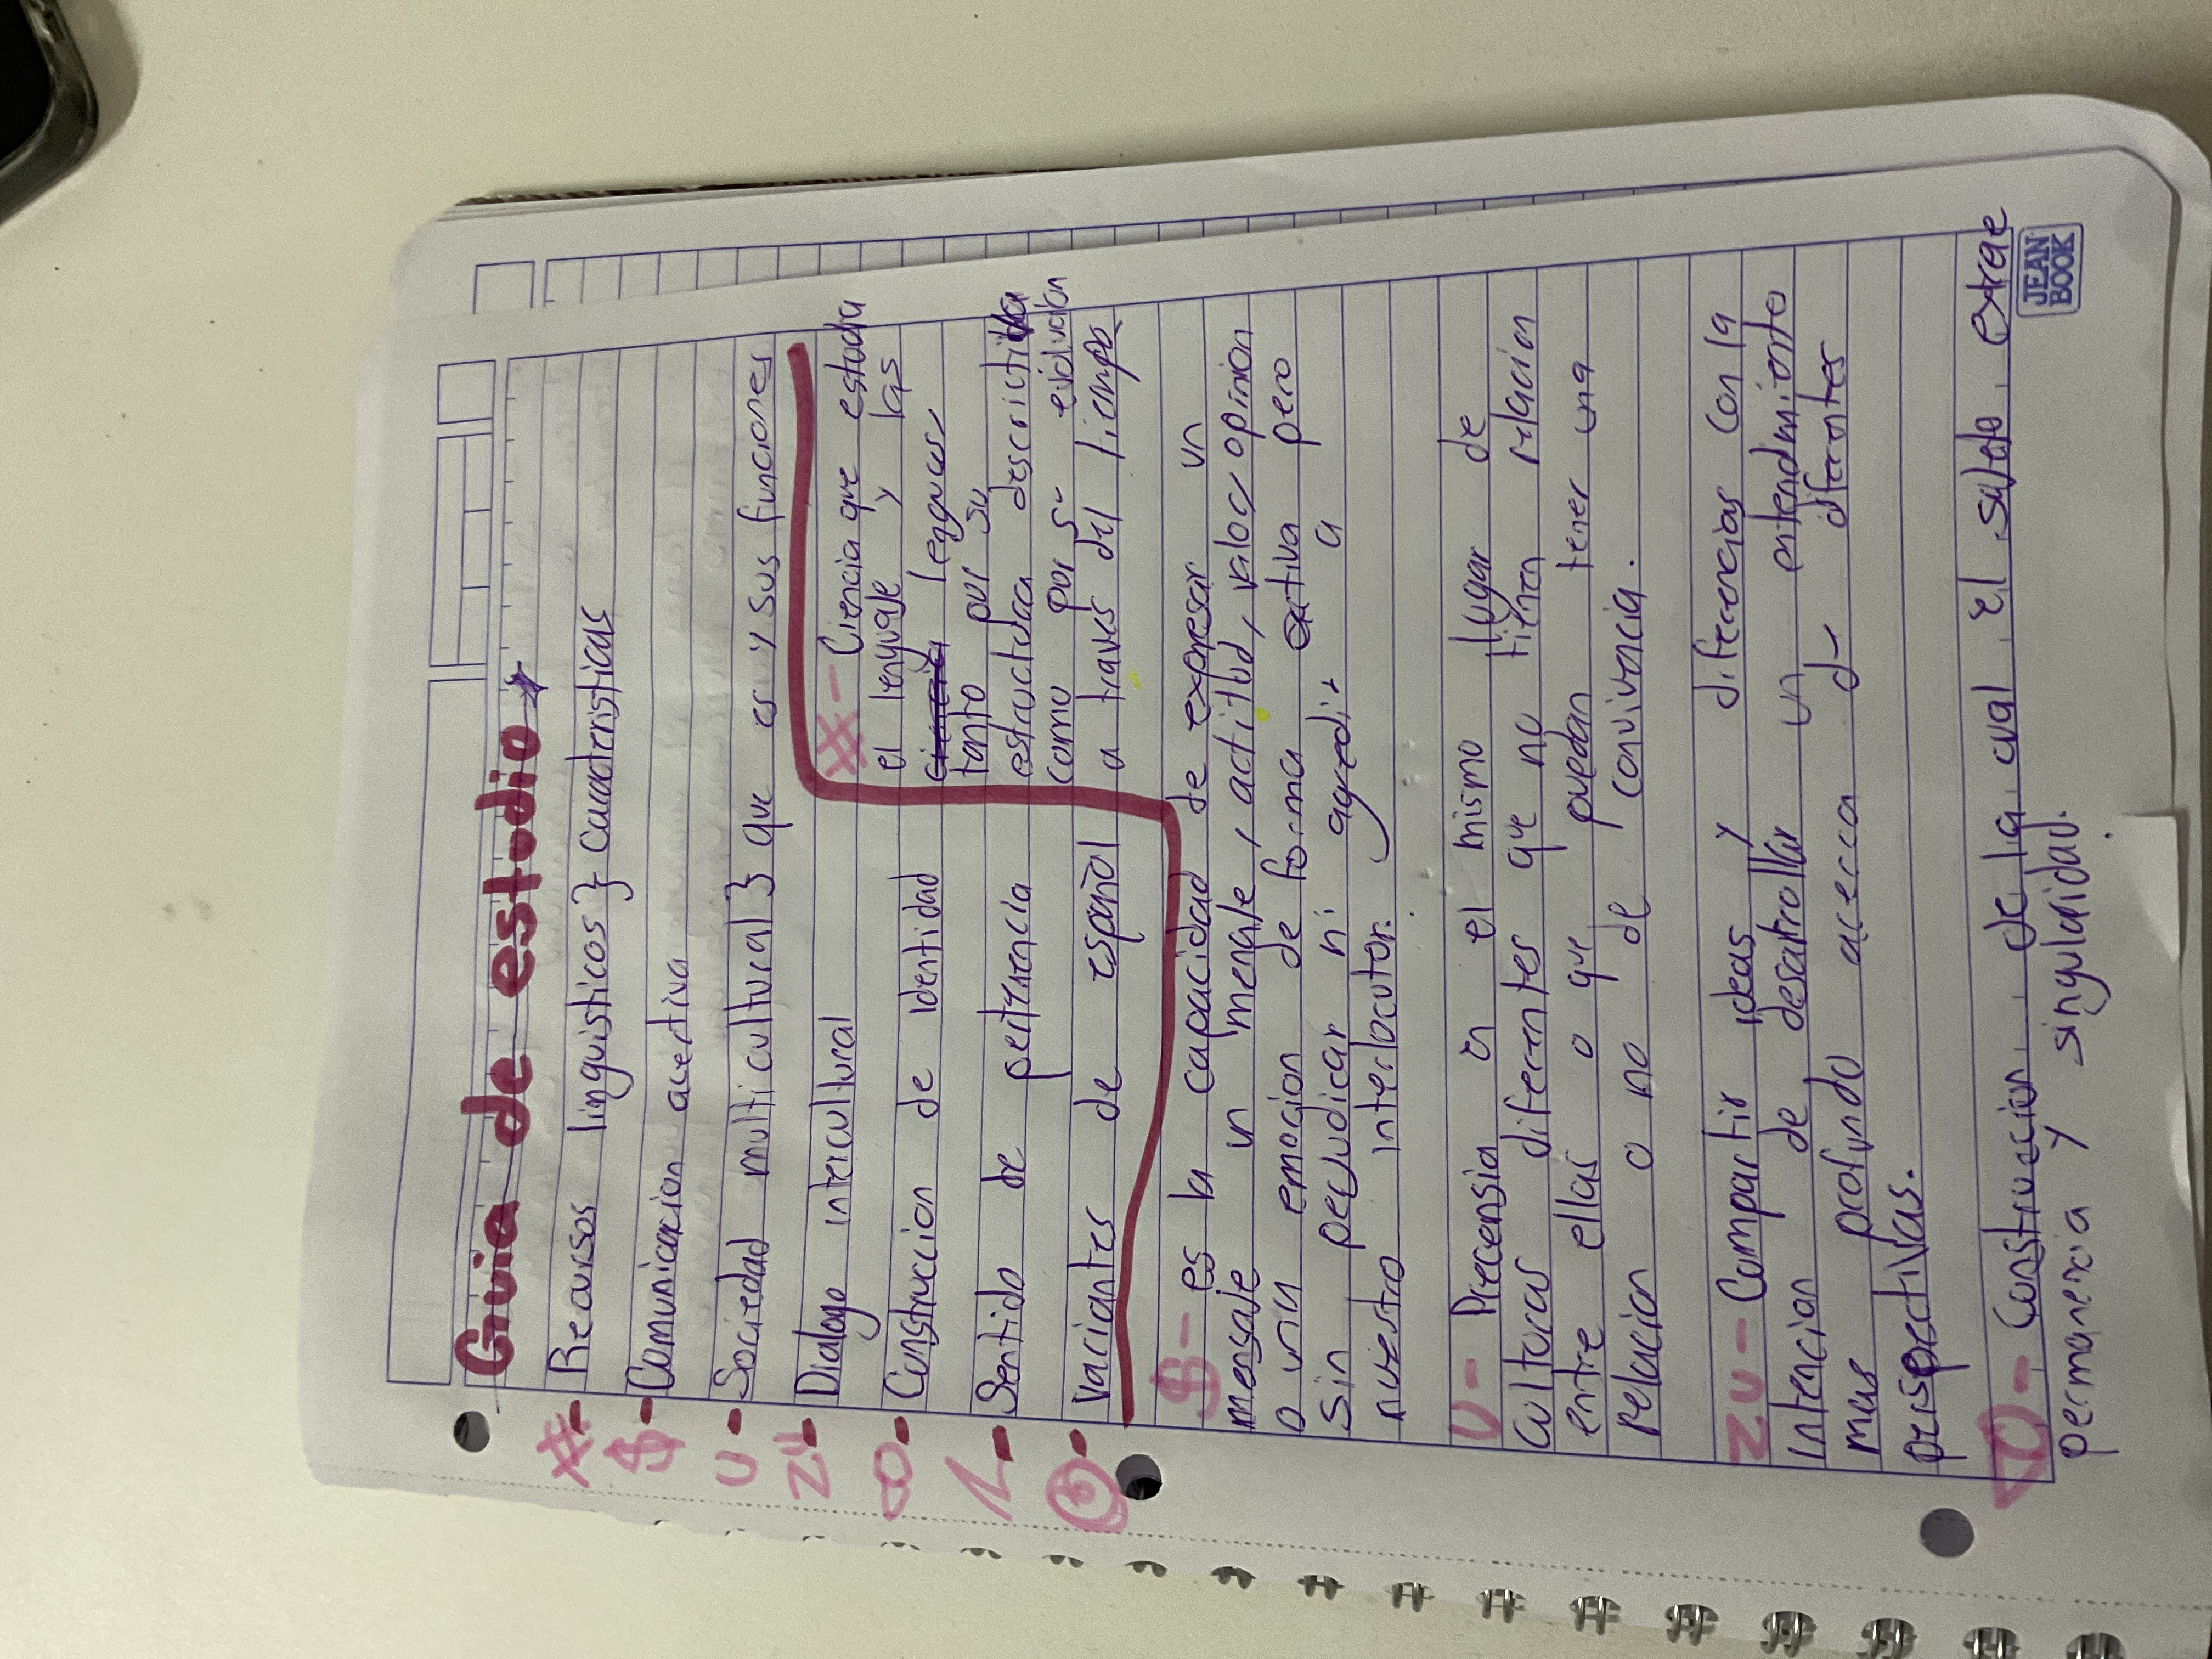 Guia de estudio
#- Recursos linguisticos } Caracteristicas
$- Comunicacion acertiva
U- Sociedad multicultural } que es y sus funciones
ZU- Dialogo intercultural
Construccion de identidad
1- Sentido de pertenencia
Variantes de español
#- Ciencia que estudia
el lenguaje y las
ciencia lenguas,
tanto por su
estructura descrictiva
como por s- evolucion
a traves del tiempo
$- es la capacidad de expresar un
mensaje un mensaje, actitud, valor, opinion
o una emocion de forma activa pero
sin perjudicar ni agredir a
nuestro interlocutor.
U- Precensia en el mismo lugar de
culturas diferentes que no tienen relacion
entre ellas o que puedan tener una
relacion o no de convivencia.
ZU- Compartir ideas y diferencias con la
intencion de desarrollar un entendimiento
mas profundo acerca d- diferentes
perspectivas.
Construccion de la cual el sujeto extrae
permanencia y singularidad.
JEAN BOOK